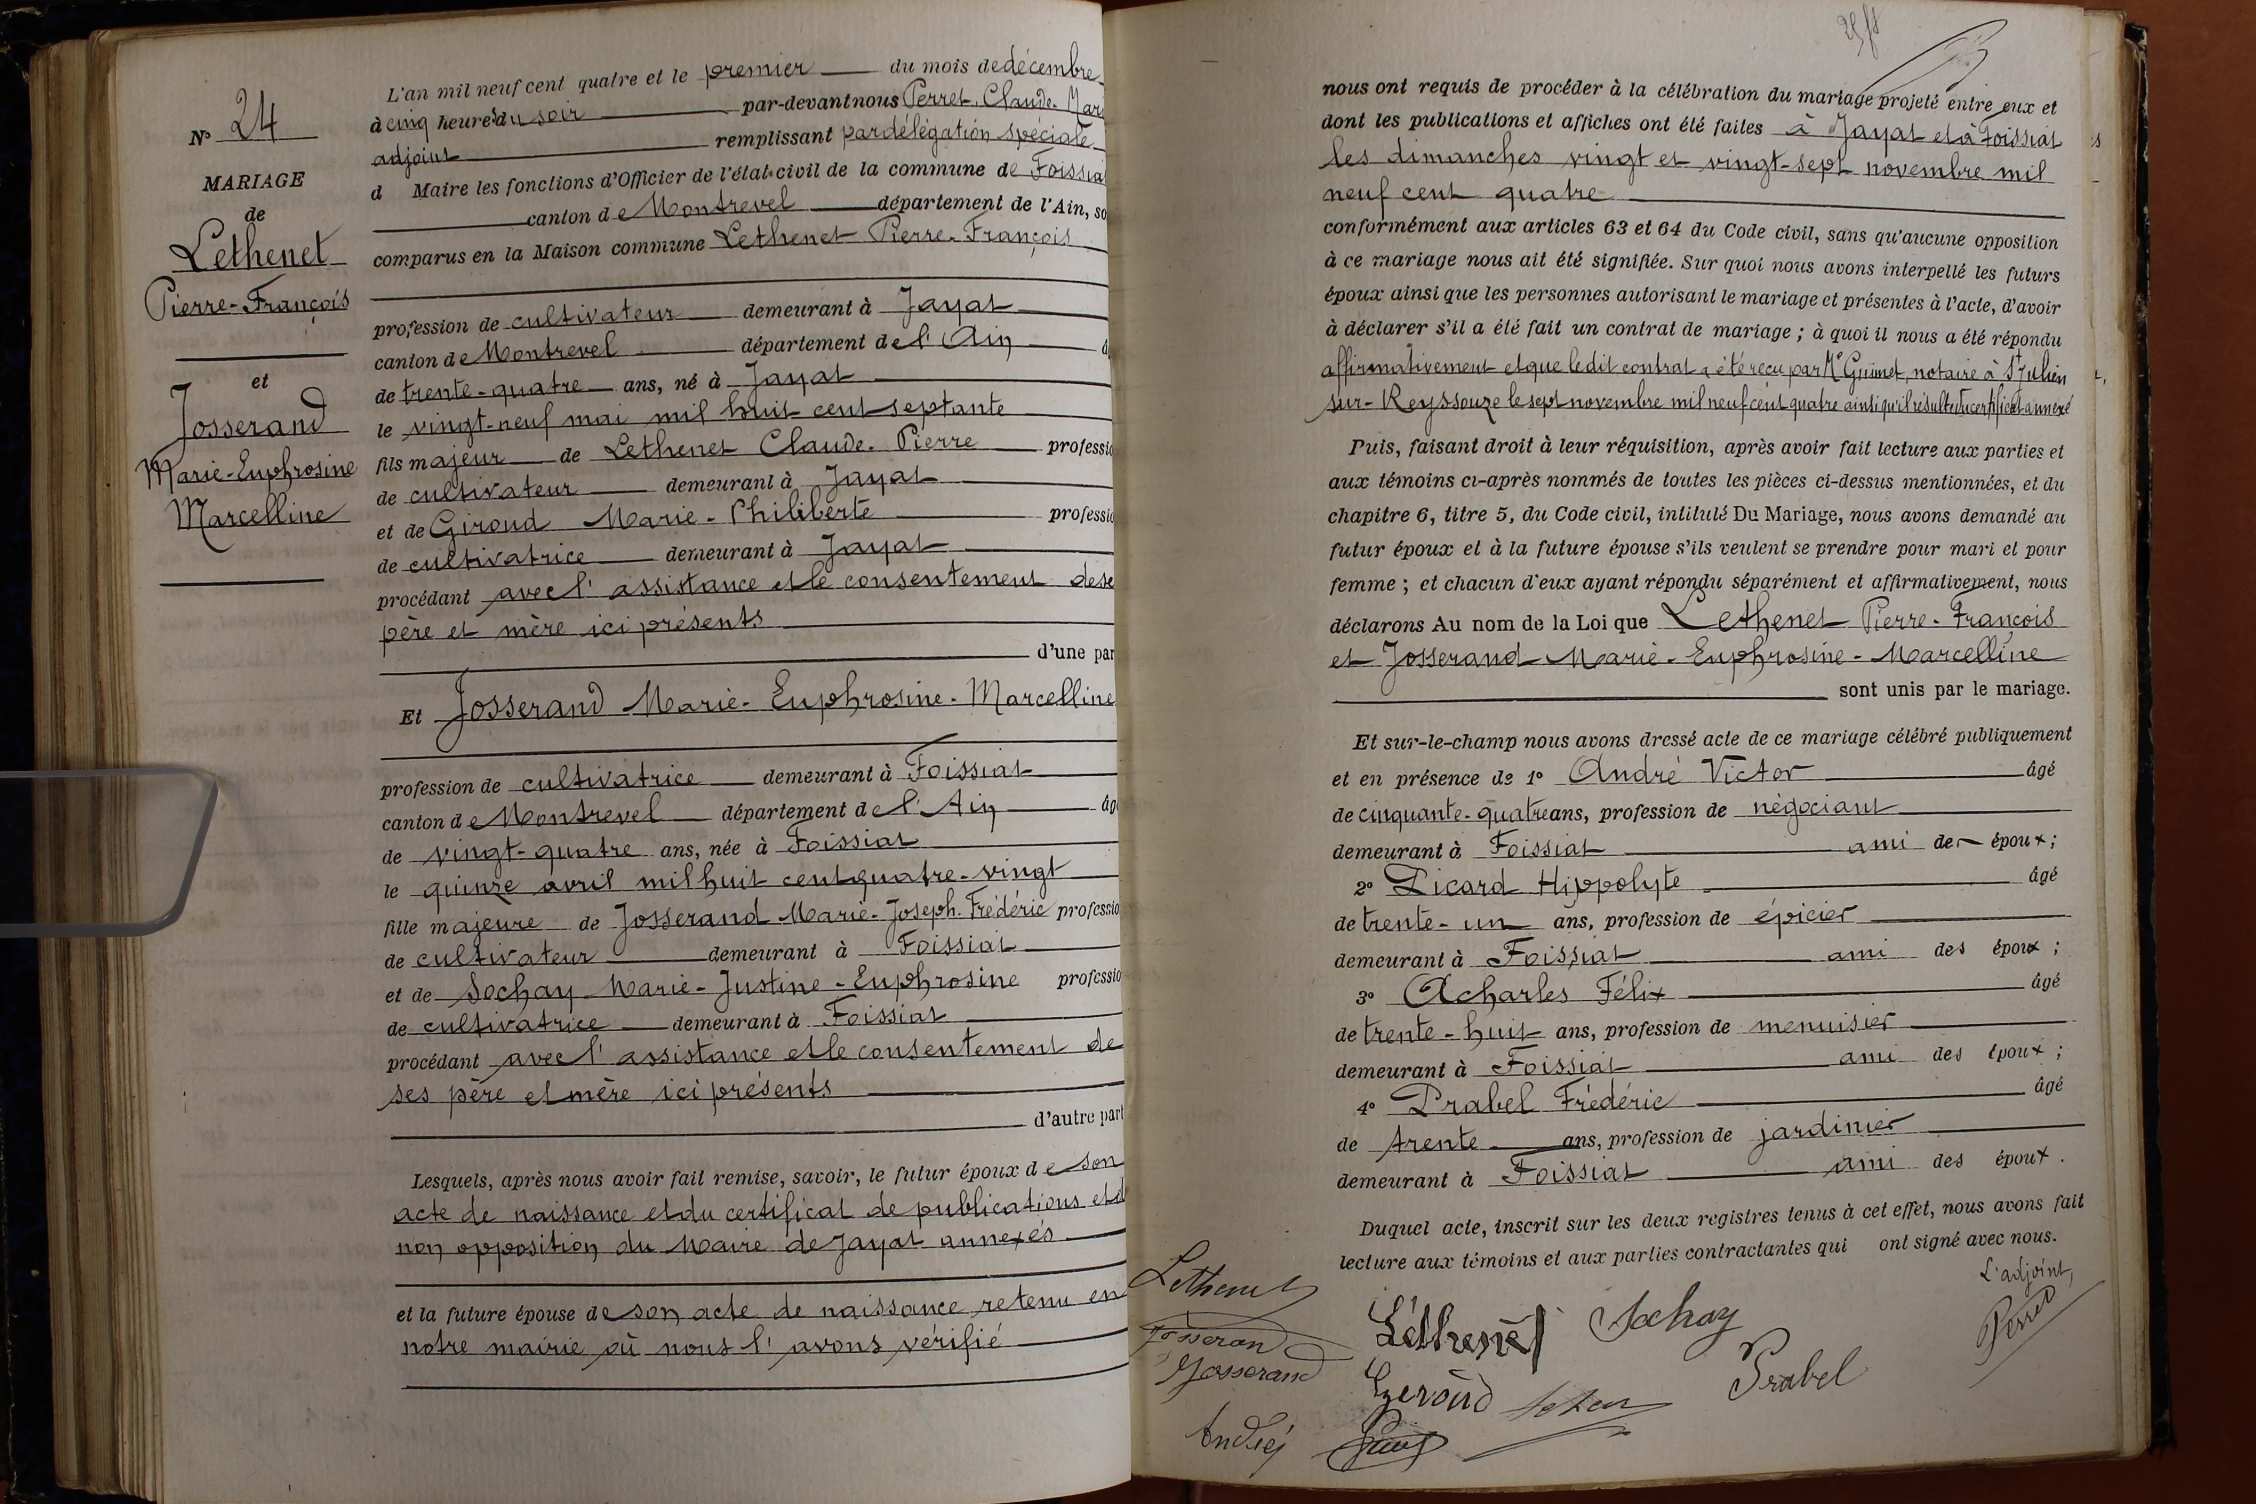 N° 24
MARIAGE
de
Lethenet
Pierre-François
et
Josserand
Marie-Euphrosine
Marcelline
L'an mil neuf cent quatre et le premier du mois de décembre
à cinq heures du soir par-devant nous Perret, Claude-Mar
adjoint remplissant par délégation spéciale
d Maire les fonctions d'Officier de l'état-civil de la commune de Foissia
canton de Montrevel département de l'Ain, so
comparus en la Maison commune Lethenet Pierre-François
profession de cultivateur demeurant à Jayat
canton de Montrevel département de l'Ain
de trente-quatre ans, né à Jayat
le vingt-neuf mai mil huit cent septante
fils majeur de Lethenet Claude-Pierre professio
de cultivateur demeurant à Jayat
et de Giroud Marie-Philiberte professio
de cultivatrice demeurant à Jayat
procédant avec l'assistance et le consentement de se
père et mère ici présents
d'une par
Et Josserand Marie-Euphrosine-Marcelline
profession de cultivatrice demeurant à Foissiat
canton de Montrevel département de l'Ain âg
de vingt-quatre ans, née à Foissiat
le quinze avril mil huit cent quatre-vingt
fille majeure de Josserand Marie-Joseph-Frédéric professio
de cultivateur demeurant à Foissiat
et de Sochay Marie-Justine-Euphrosine professio
de cultivatrice demeurant à Foissiat
procédant avec l'assistance et le consentement de
ses père et mère ici présents
d'autre part
Lesquels, après nous avoir fait remise, savoir, le futur époux de son
acte de naissance et du certificat de publications et d
non opposition du Maire de Jayat annexés
et la future épouse de son acte de naissance retenu en
notre mairie où nous l'avons vérifié
nous ont requis de procéder à la célébration du mariage projeté entre eux et
dont les publications et affiches ont été faites à Jayat et à Foissiat
les dimanches vingt et vingt-sept novembre mil
neuf cent quatre
conformément aux articles 63 et 64 du Code civil, sans qu'aucune opposition
à ce mariage nous ait été signifiée. Sur quoi nous avons interpellé les futurs
époux ainsi que les personnes autorisant le mariage et présentes à l'acte, d'avoir
à déclarer s'il a été fait un contrat de mariage ; à quoi il nous a été répondu
affirmativement et que le dit contrat a été reçu par Me Guimet, notaire à St Julien
sur-Reyssouze le sept novembre mil neuf cent quatre ainsi qu'il résulte du certificat annexé
Puis, faisant droit à leur réquisition, après avoir fait lecture aux parties et
aux témoins ci-après nommés de toutes les pièces ci-dessus mentionnées, et du
chapitre 6, titre 5, du Code civil, intitulé Du Mariage, nous avons demandé au
futur époux et à la future épouse s'ils veulent se prendre pour mari et pour
femme ; et chacun d'eux ayant répondu séparément et affirmativement, nous
déclarons Au nom de la Loi que Lethenet Pierre-François
et Josserand Marie-Euphrosine-Marcelline
sont unis par le mariage.
Et sur-le-champ nous avons dressé acte de ce mariage célébré publiquement
et en présence de 1° André Victor âgé
de cinquante-quatre ans, profession de négociant
demeurant à Foissiat ami de époux ;
2° Picard Hippolyte âgé
de trente-un ans, profession de épicier
demeurant à Foissiat ami des époux ;
3° Acharles Félix âgé
de trente-huit ans, profession de menuisier
demeurant à Foissiat ami des époux ;
4° Prabel Frédéric âgé
de trente ans, profession de jardinier
demeurant à Foissiat ami des époux.
Duquel acte, inscrit sur les deux registres tenus à cet effet, nous avons fait
lecture aux témoins et aux parties contractantes qui ont signé avec nous.
L'adjoint,
Perret
Lethenet
Josseran
Josserand
Léthenet
Sochay
Geroud
Prabel
André